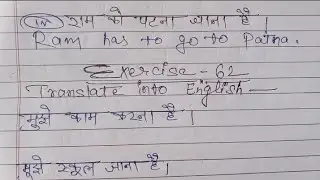 (iv) राम को पटना जाना है।
Ram has to go to Patna.
Exercise - 62
Translate into English —
मुझे काम करना है।
मुझे स्कूल जाना है।